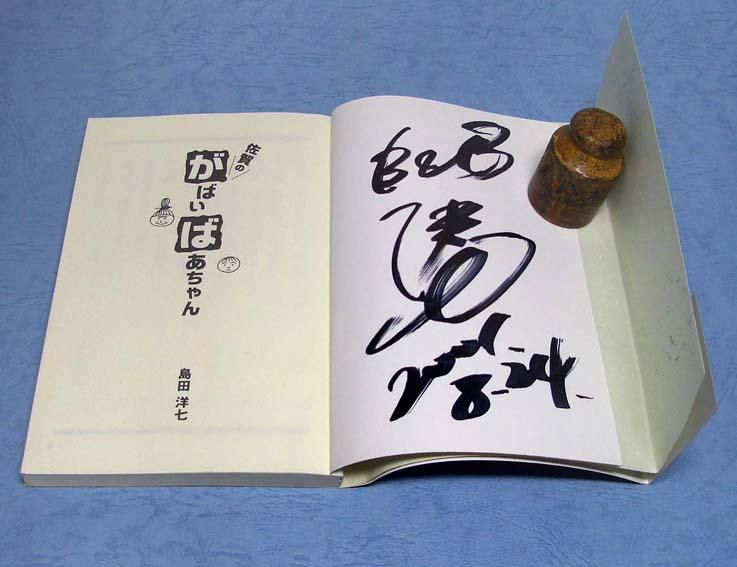 佐賀の
がばいばあちゃん
島田 洋七
B&B
2001.
8.24.